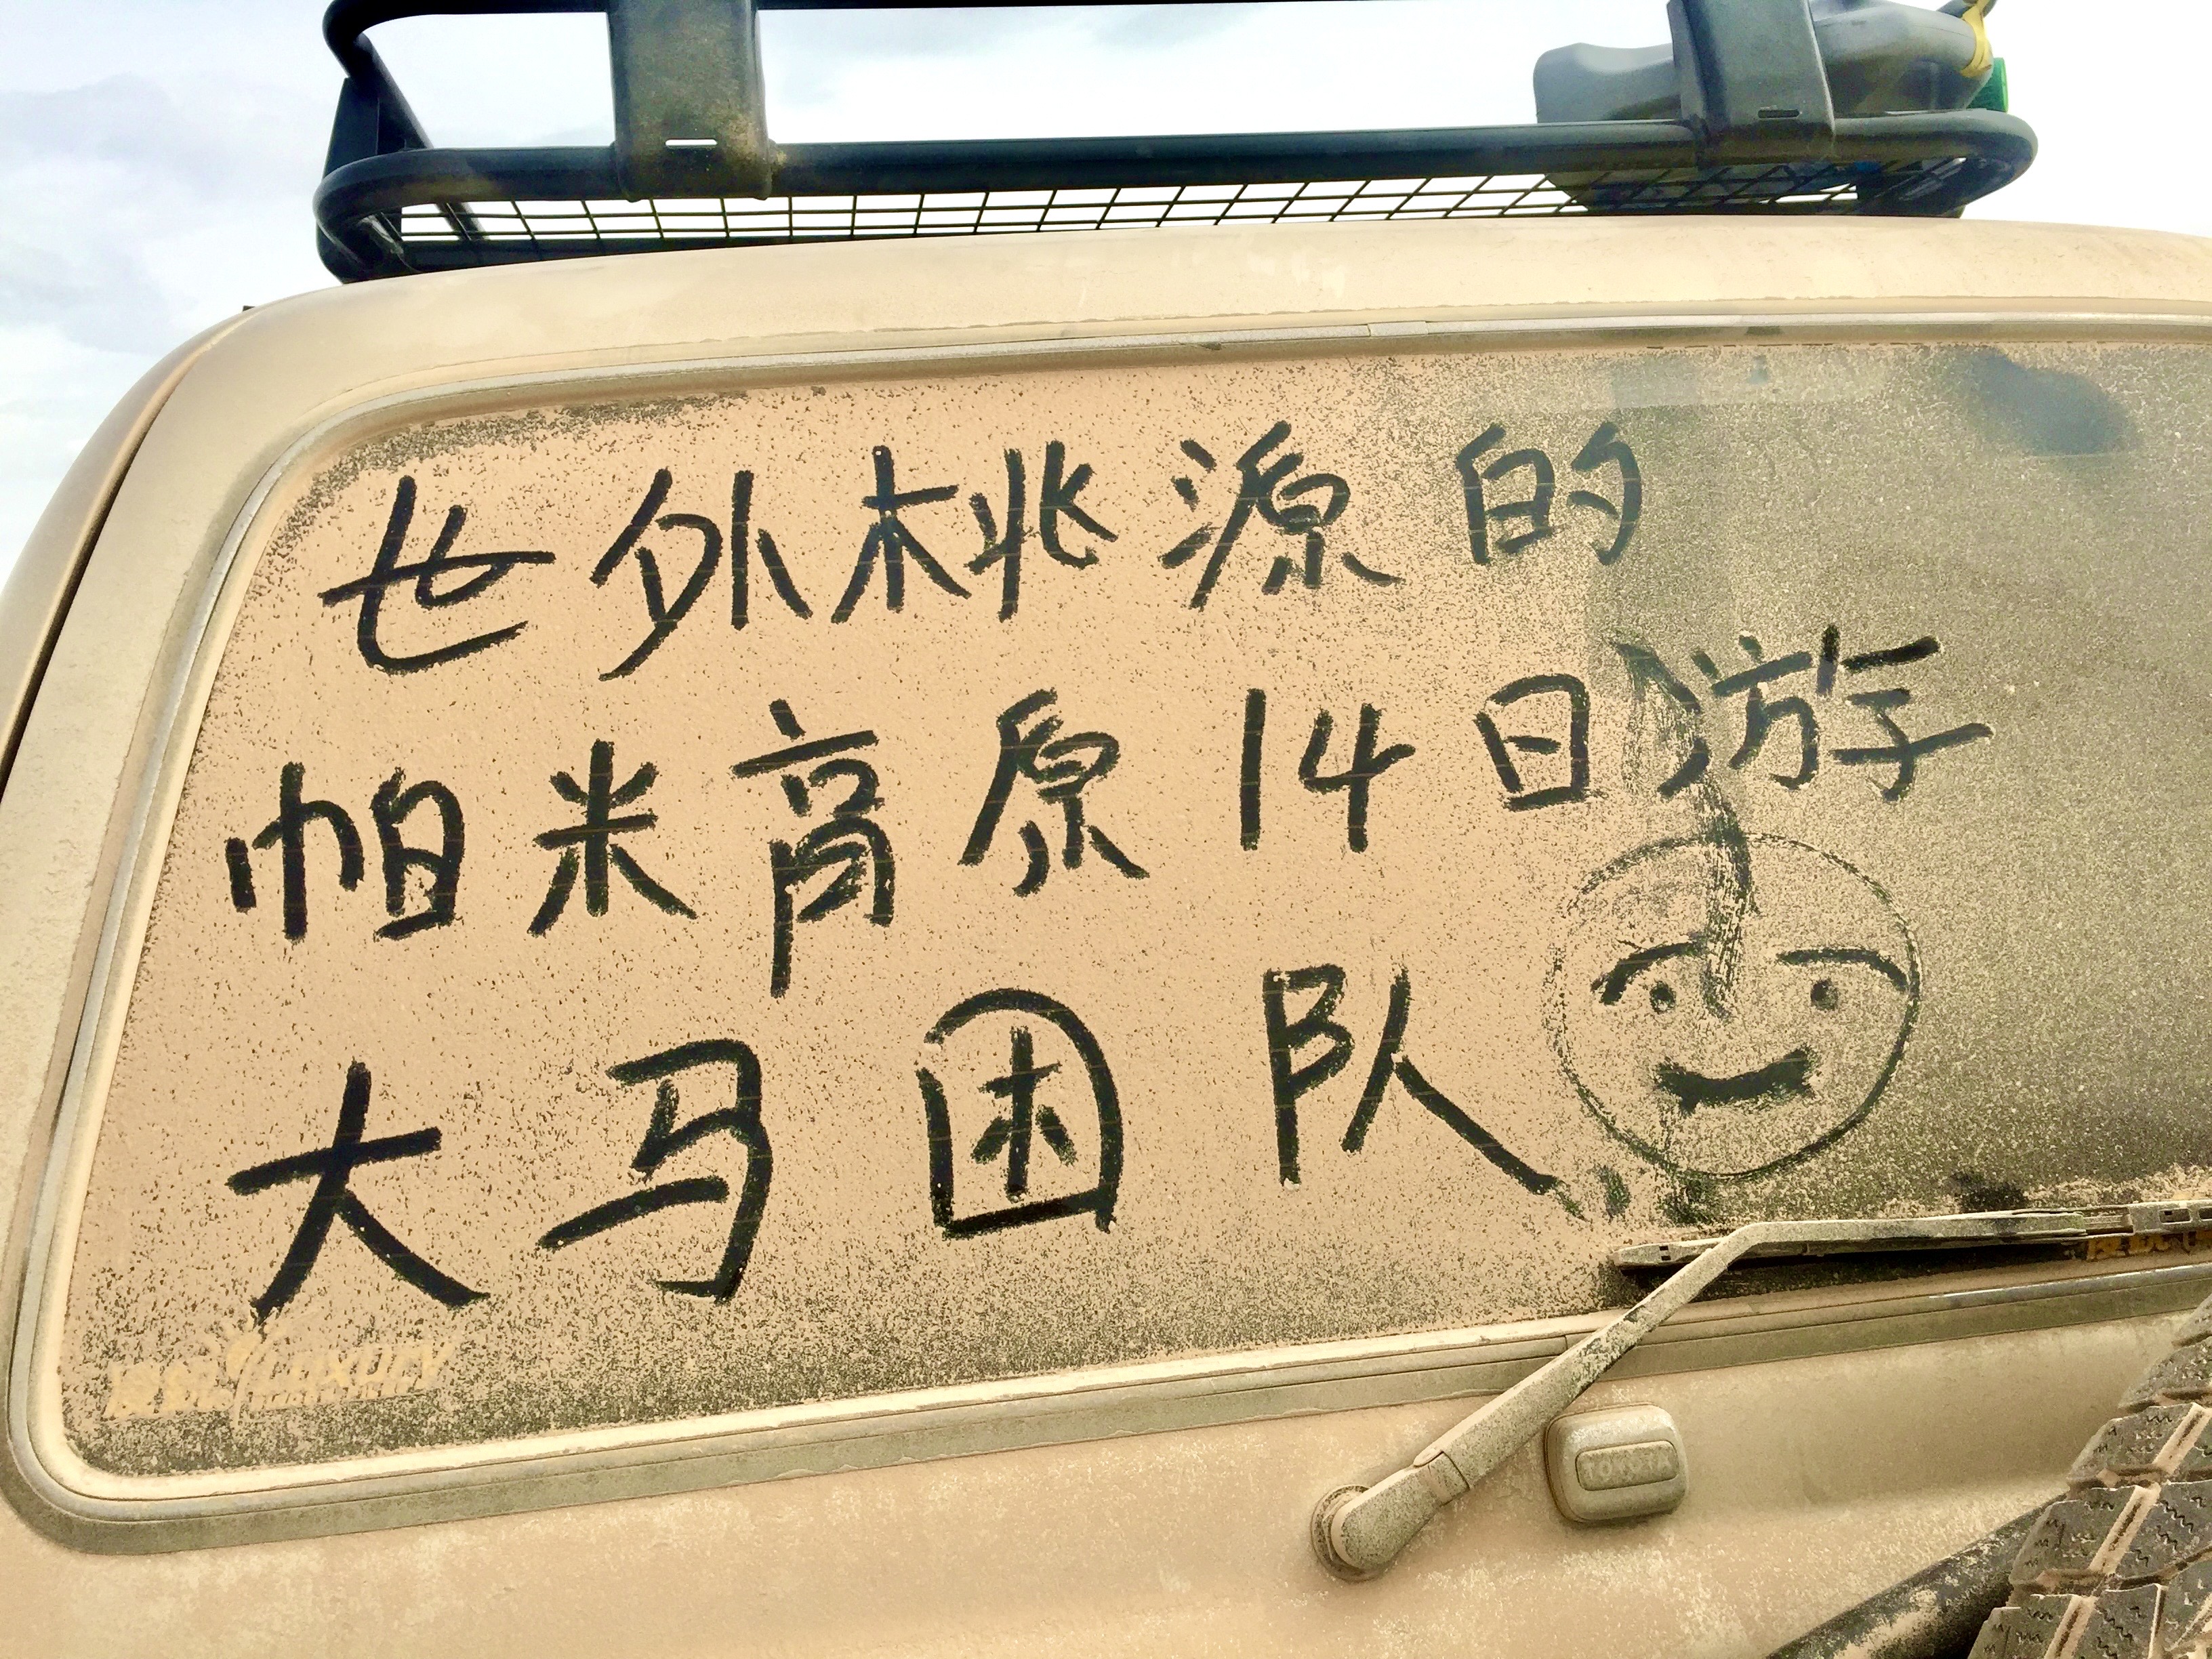 世外桃源的
帕米高原14日游
大马困队
LUXURY
TOYOTA